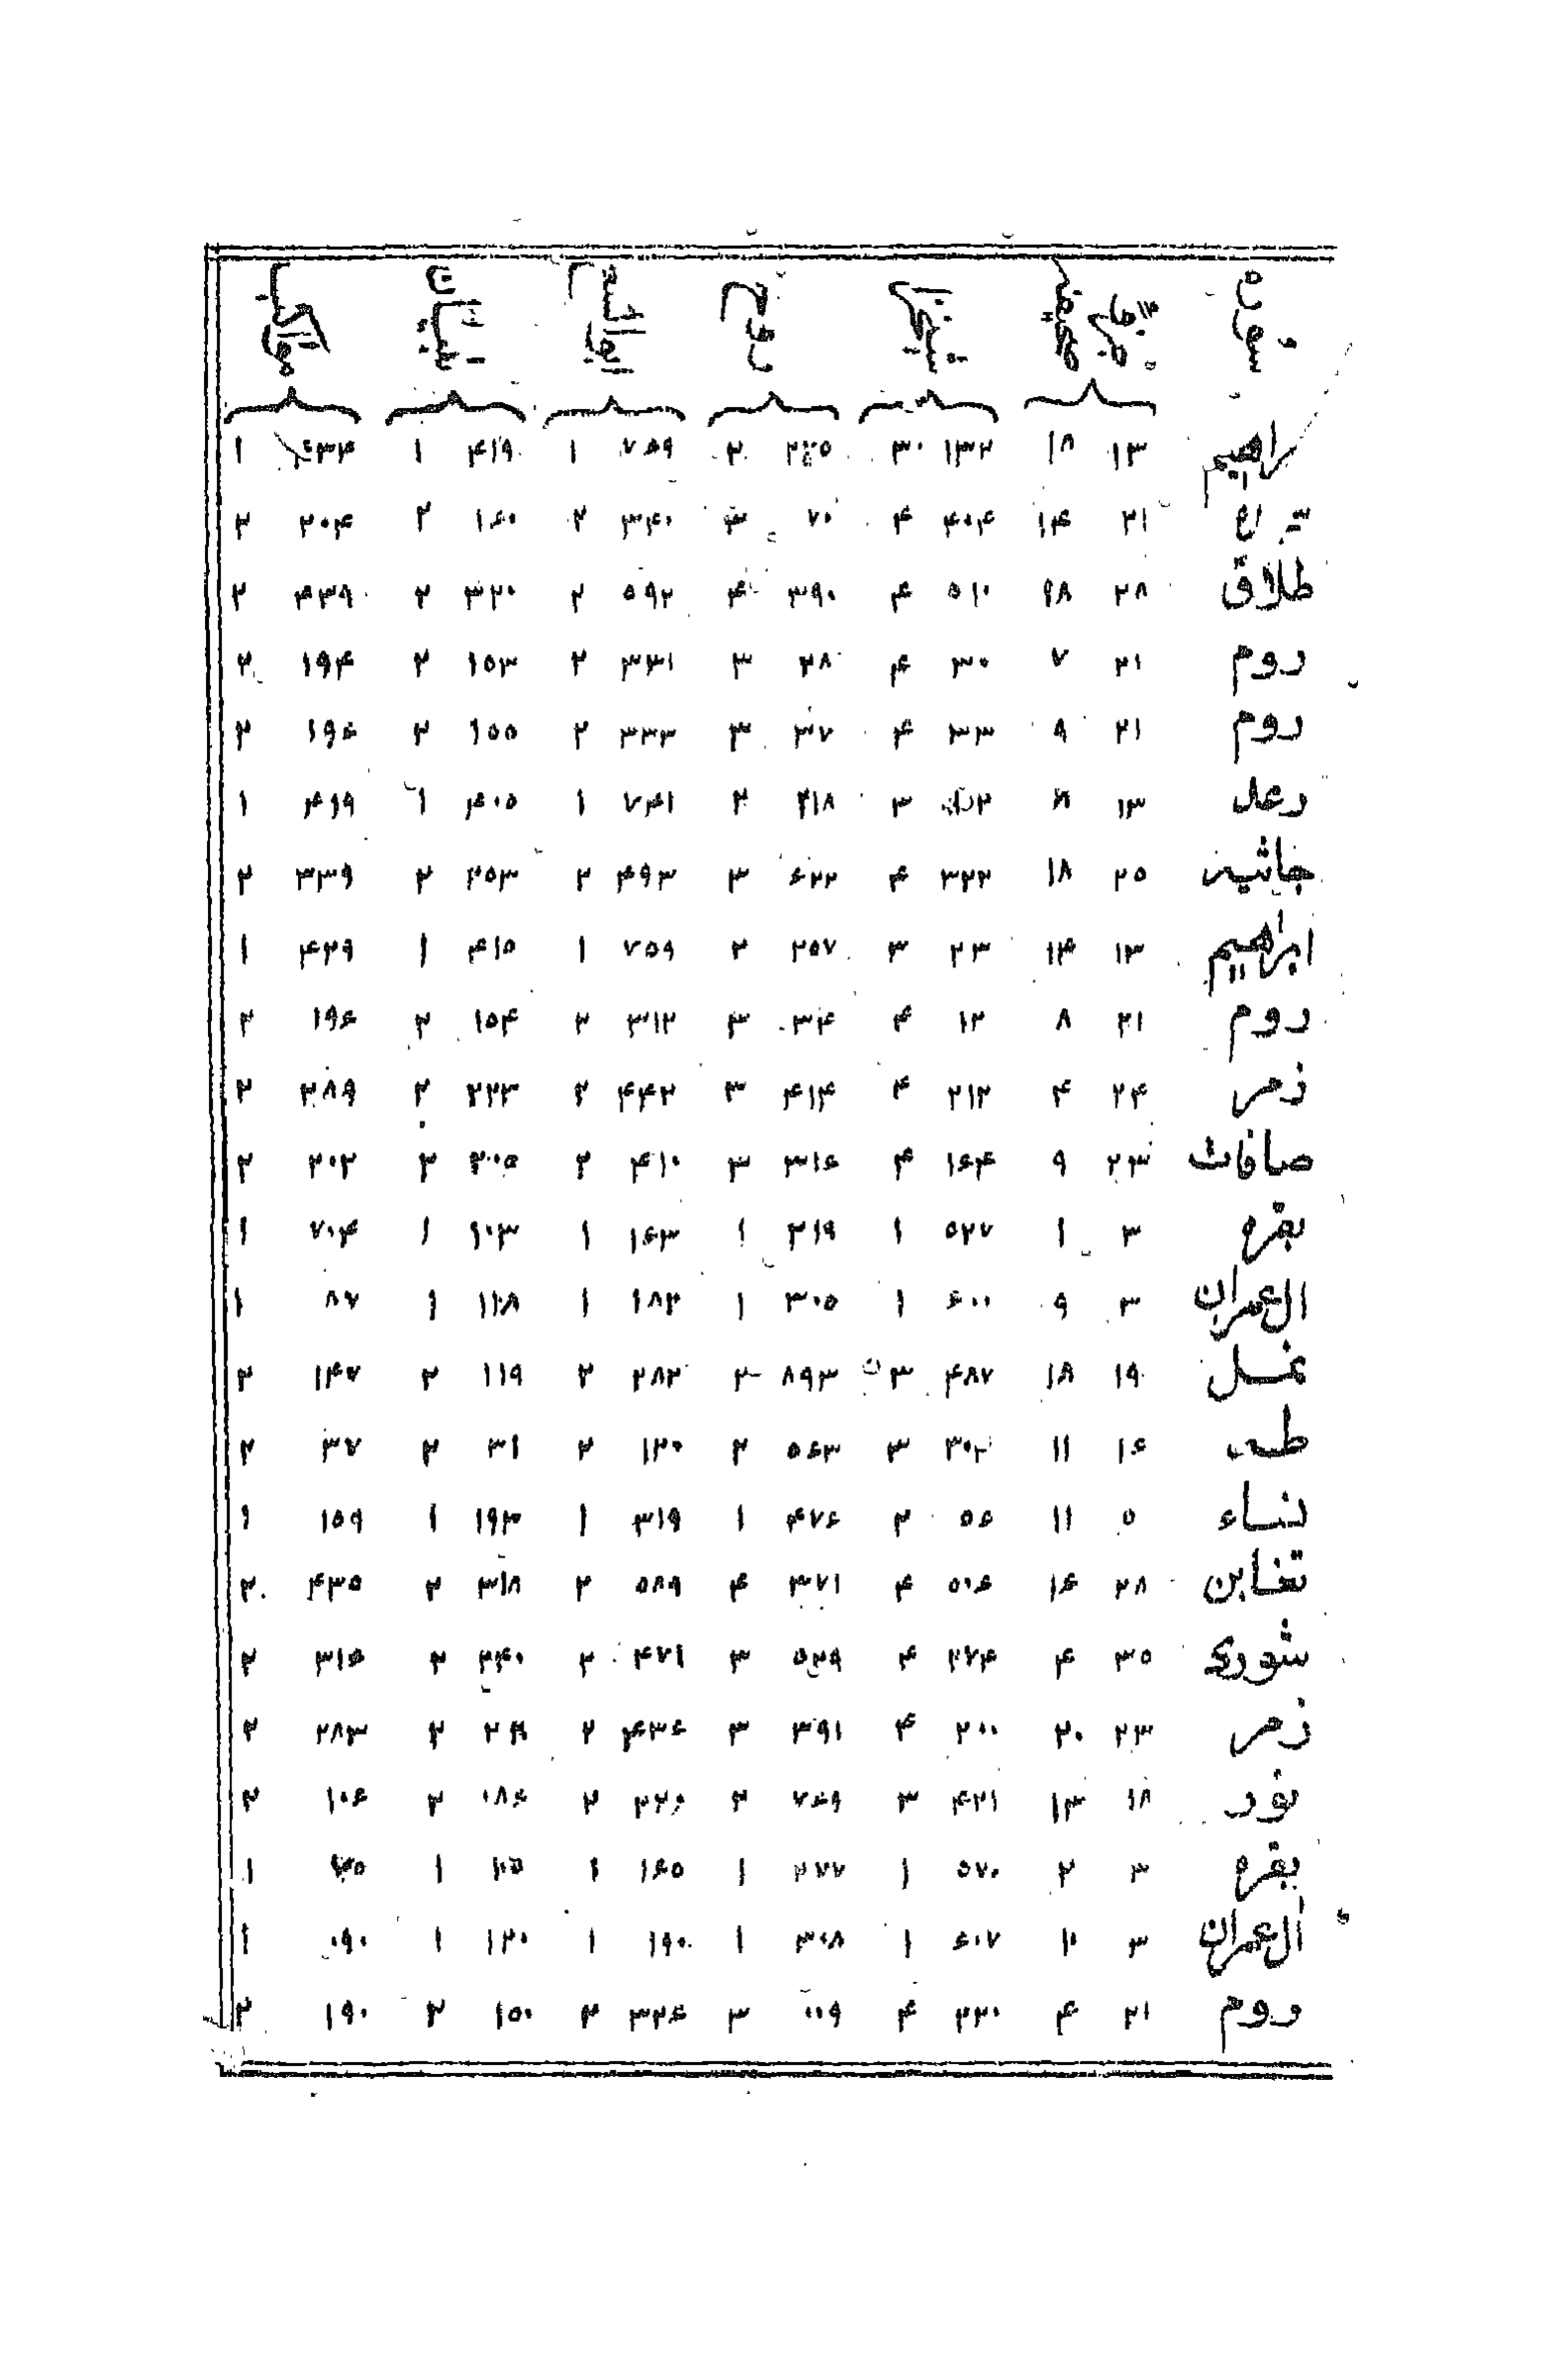 سوره
راهیم ۱۳ ۱۸ ۱۳۲ ۳۰ ۲ ۷۵۹ ۱ ۴۱۹ ۱ ۱
۲۱ ۱۴ ۴۰۴ ۴ ۷۰ ۳ ۳۴۰ ۲ ۱۶۰ ۲ ۲۰۴ ۲
طلاق ۲۸ ۹۸ ۵۱۰ ۴ ۳۹۰ ۴ ۵۹۲ ۲ ۳۲۰ ۲ ۴۳۹ ۲
روم ۲۱ ۷ ۳۰ ۴ ۲۸ ۳ ۳۳۱ ۲ ۱۵۳ ۲ ۱۹۴ ۲
روم ۲۱ ۹ ۳۳ ۴ ۳۷ ۳ ۳۳۳ ۲ ۱۵۵ ۲ ۱۹۶ ۲
رعد ۱۳ ۳ ۲۱۸ ۲ ۷۴۱ ۱ ۴۰۵ ۱ ۴۱۹ ۱
جاثیه ۲۵ ۱۸ ۳۲۲ ۴ ۶۲۲ ۳ ۴۹۳ ۲ ۲۵۳ ۲ ۳۳۹ ۲
ابراهیم ۱۳ ۱۴ ۲۳ ۳ ۲۵۷ ۲ ۷۵۹ ۱ ۴۱۵ ۱ ۴۲۹ ۱
روم ۲۱ ۸ ۱۲ ۴ ۳۴ ۳ ۳۱۲ ۲ ۱۵۴ ۲ ۱۹۶ ۲
زمر ۲۴ ۴ ۲۱۲ ۴ ۴۱۴ ۳ ۴۴۲ ۲ ۲۲۳ ۲ ۲۸۹ ۲
صافات ۲۳ ۹ ۱۶۴ ۴ ۳۱۶ ۳ ۴۱۰ ۲ ۲۰۵ ۲ ۲۰۲ ۲
بقره ۳ ۱ ۵۲۷ ۱ ۲۱۹ ۱ ۱۶۳ ۱ ۱۰۳ ۱ ۷۰۴ ۱
ال عمران ۳ ۹ ۶۰۰ ۱ ۳۰۵ ۱ ۱۸۲ ۱ ۱۱۸ ۱ ۸۷ ۱
نمل ۱۹ ۱۸ ۴۸۷ ۳ ۸۹۳ ۲ ۲۸۲ ۲ ۱۱۹ ۲ ۱۴۷ ۲
طه ۱۶ ۱۱ ۳۰۲ ۳ ۵۶۳ ۲ ۱۲۰ ۲ ۳۱ ۲ ۳۷ ۲
نساء ۵ ۱۱ ۵۶ ۲ ۴۷۶ ۱ ۳۱۹ ۱ ۱۹۳ ۱ ۱۵۹ ۱
تغابن ۲۸ ۱۶ ۵۰۶ ۴ ۳۷۱ ۴ ۵۸۹ ۲ ۳۱۸ ۲ ۴۳۵ ۲
شوری ۳۵ ۴ ۲۷۴ ۴ ۵۲۹ ۳ ۴۷۱ ۲ ۲۴۰ ۲ ۳۱۵ ۲
زمر ۲۳ ۲۰ ۲۰۰ ۴ ۳۹۱ ۳ ۴۳۶ ۲ ۲ ۲۸۳ ۲
نور ۱۸ ۱۳ ۴۲۱ ۳ ۷۶۹ ۲ ۲۲۰ ۲ ۰۸۶ ۲ ۱۰۶ ۲
بقره ۳ ۲ ۵۷۰ ۱ ۲۷۷ ۱ ۱۶۵ ۱ ۱ ۱
ال عمران ۳ ۱۰ ۶۰۷ ۱ ۳۰۸ ۱ ۱۹۰ ۱ ۱۲۰ ۱ ۰۹۰ ۱
روم ۲۱ ۴ ۲۲۰ ۴ ۰۰۹ ۳ ۳۲۶ ۲ ۱۵۰ ۲ ۱۹۰ ۲